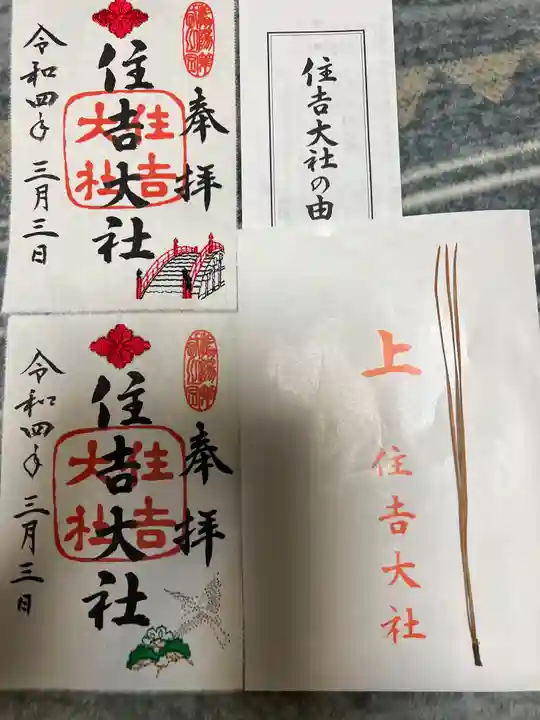 奉拝
住吉大社
住吉
大社
令和四年 三月三日
住吉大社の由
奉拝
住吉大社
住吉
大社
令和四年 三月三日
上
住吉大社